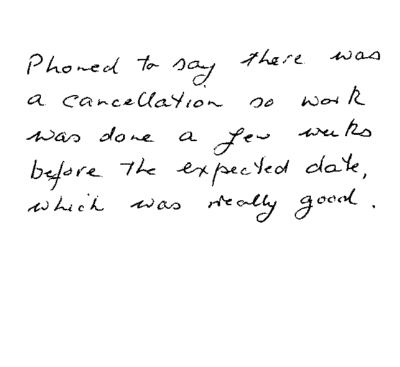 Phoned to say there was
a cancellation so work
was done a few weeks
before the expected date,
which was really good.